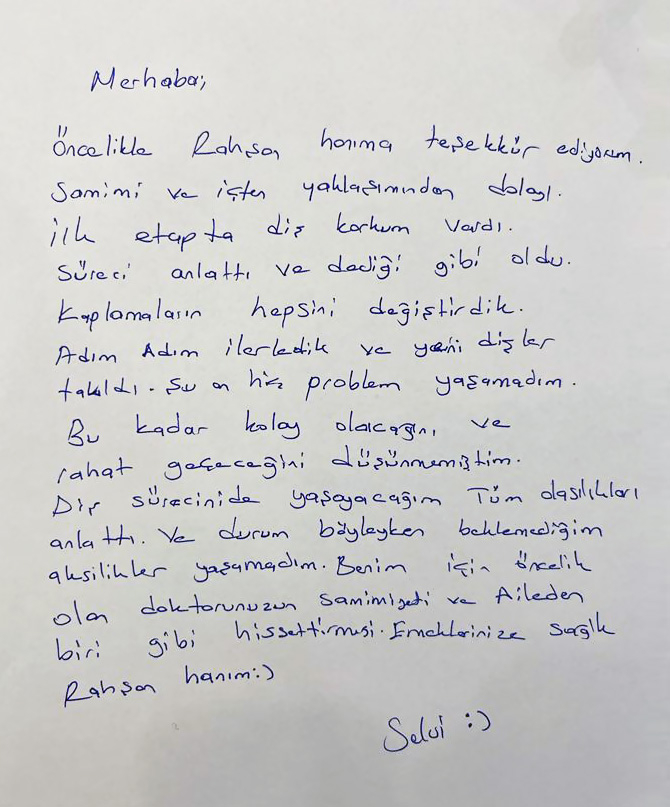 Merhaba;
Öncelikle Rahşan hanıma teşekkür ediyorum.
Samimi ve içten yaklaşımından dolayı.
ilk etapta diş korkum vardı.
Süreci anlattı ve dediği gibi oldu.
Kaplamaların hepsini değiştirdik.
Adım Adım ilerledik ve yeni dişler
takıldı. Şu an hiç problem yaşamadım.
Bu kadar kolay olacağını ve
rahat geçeceğini düşünmemiştim.
Diş sürecinide yaşayacağım Tüm olasılıkları
anlattı. Ve durum böyleyken beklemediğim
aksilikler yaşamadım. Benim için öncelik
olan doktorunuzun samimiyeti ve Aileden
biri gibi hissettirmesi. Emeklerinize sağlık
Rahşan hanım:)
Selvi :)